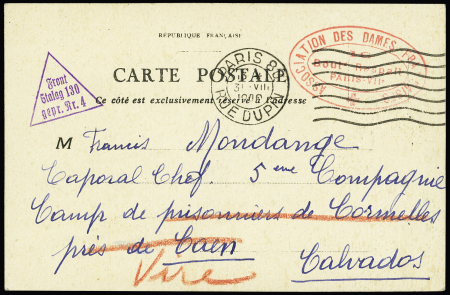 RÉPUBLIQUE FRANÇAISE
CARTE POSTALE
Ce côté est exclusivement réservé à l'adresse
Front
Stalag 130
gepr. Nr. 4
PARIS
RUE DUPIN
ASSOCIATION DES DAMES
M Francis Mondange
Caporal Chef. 5eme Compagnie
Camp de prisonniers de Cormelles
près de Caen Calvados
Vire